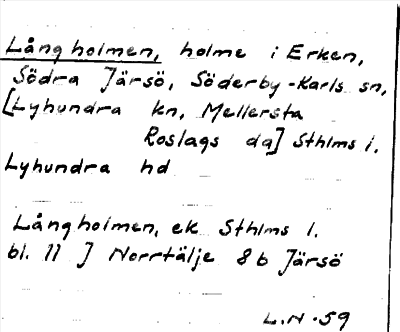 Långholmen, holme i Erken,
Södra Järsö, Söderby-Karls sn,
[Lyhundra kn, Mellersta
Roslags dg] Sthlms l.
Lyhundra hd
Långholmen, ek Sthlms l.
bl. 11 J Norrtälje 8b Järsö
L.N.59